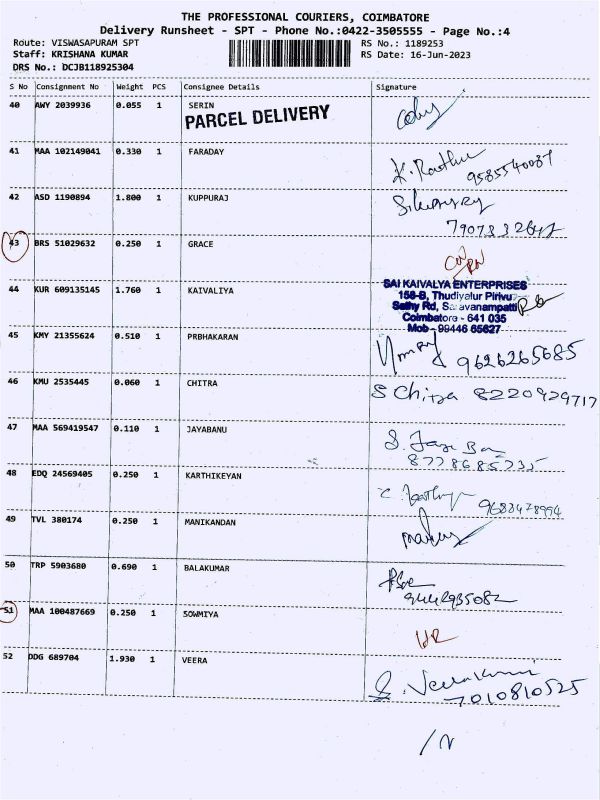 THE PROFESSIONAL COURIERS, COIMBATORE
Delivery Runsheet - SPT - Phone No.:0422-3505555 - Page No.:4
Route: VISWASAPURAM SPT RS No.: 1189253
Staff: KRISHANA KUMAR RS Date: 16-Jun-2023
DRS No.: DCJB118925304
S No Consignment No Weight PCS Consignee Details Signature
40 AWY 2039936 0.055 1 SERIN
PARCEL DELIVERY
41 MAA 102149041 0.330 1 FARADAY
9585540087
42 ASD 1190894 1.800 1 KUPPURAJ
43 BRS 51029632 0.250 1 GRACE
44 KUR 609135145 1.760 1 KAIVALIYA
SAI KAIVALYA ENTERPRISES
158-B, Thudiyalur Pirivu
Sathy Rd, Saravanampatti
Coimbatore - 641 035
Mob - 99446 65627
45 KMY 21355624 0.510 1 PRBHAKARAN
9626265685
46 KMU 2535445 0.060 1 CHITRA
S Chitra 8220929717
47 MAA 569419547 0.110 1 JAYABANU
8778685735
48 EDQ 24569405 0.250 1 KARTHIKEYAN
9688478994
49 TVL 380174 0.250 1 MANIKANDAN
50 TRP 5903680 0.690 1 BALAKUMAR
9442935082
51 MAA 100487669 0.250 1 SOWMIYA
52 DDG 689704 1.930 1 VEERA
7010810525